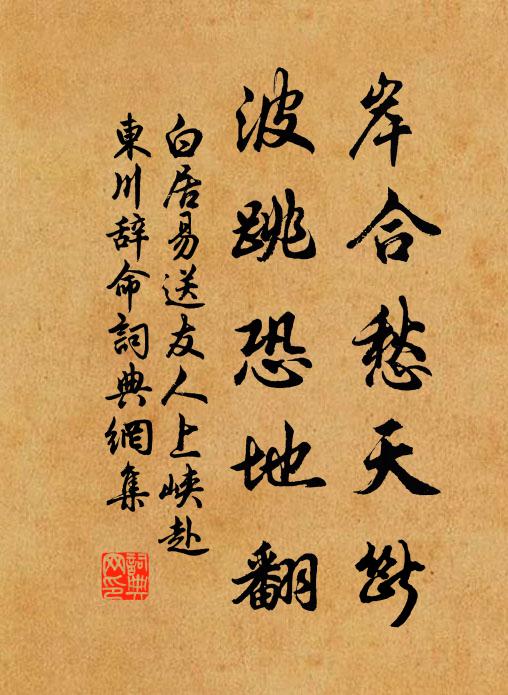 岸合愁天断
波跳恐地翻
白居易送友人上峡赴
東川辞命詞典網集
詞典
网印